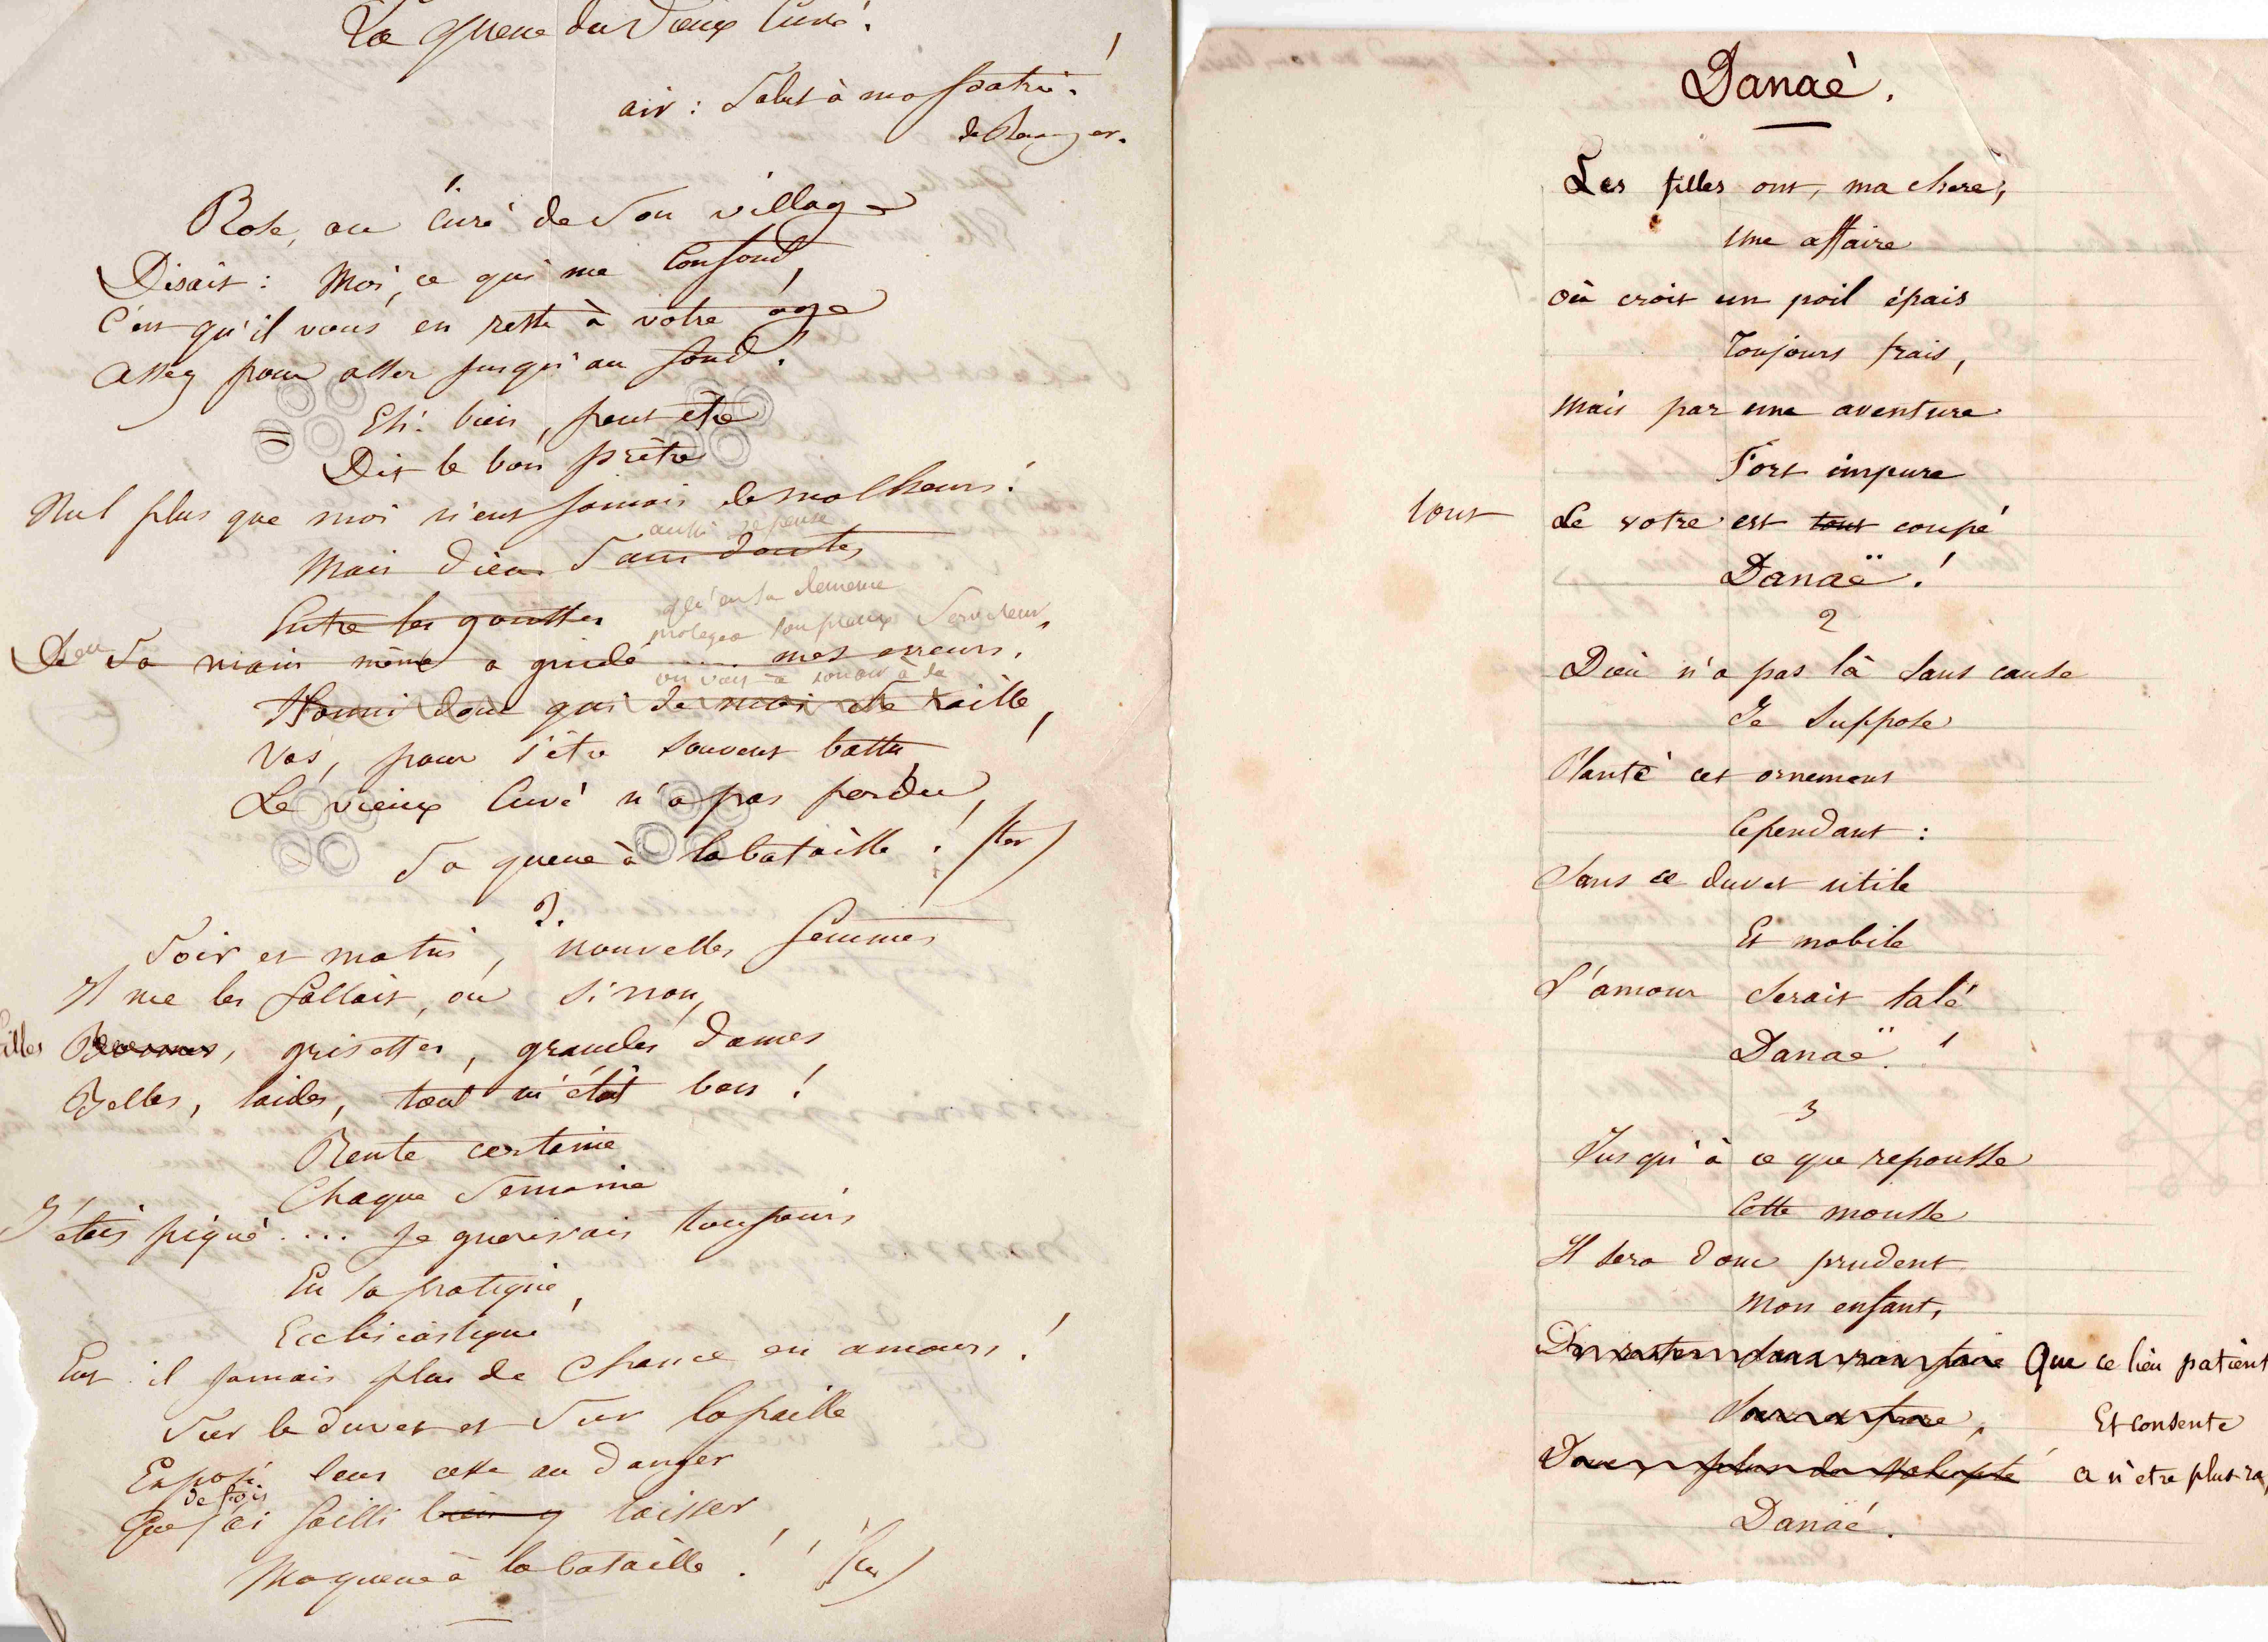 La queue du Vieux Curé !
air : Salut à ma patrie !
de Béranger.
1.
Rose, au Curé de son village
Disait : Moi, ce qui me confond,
C'est qu'il vous en reste à votre âge
Assez pour aller jusqu'au fond !
Eh ! bien, peut être
Dit le bon prêtre
Nul plus que moi n'eut jamais de malheurs !
aussi je pense
Mais Dieu sans doute,
qu'en sa clemence
Entre les gouttes
protegea son pieux Serviteur,
De sa main même a guidé .... mes erreurs.
on vois à
Honni donc qui de moi se raille,
Vas, pour s'être souvent battu,
Le vieux Curé n'a pas perdu,
Sa queue à la bataille ! (ter)
2.
Soir et matin, nouvelles femmes
Il me les fallait, ou sinon,
filles
grisettes, grandes dames
Belles, laides, tout m'était bon !
Rente certaine
Chaque Semaine
J'étais piqué .... je guerissais toujours
En sa pratique,
Ecclésiastique
Eut il jamais plus de chance en amours !
Sur le duvet et Sur la paille
Exposé sans cesse au danger
de fois
Que j'ai failli bien y laisser
Ma queue à la bataille ! (ter)
Danaé.
Les filles ont, ma chere,
Une affaire
Où croit un poil épais
Toujours frais,
Mais par une aventure
Fort impure
tout Le votre est tout coupé
Danaë !
2
Dieu n'a pas là sans cause
Je suppose
Planté cet ornement
Cependant :
Sans ce duvet utile
Et mobile
L'amour serait talé
Danaë !
3
Jusqu'à ce que repousse
Cette mousse
Il sera donc prudent
Mon enfant,
De rester sans rien faire Que ce lieu patient
Et consente
Donc, plus de volupté a n'etre plus
Danaé.